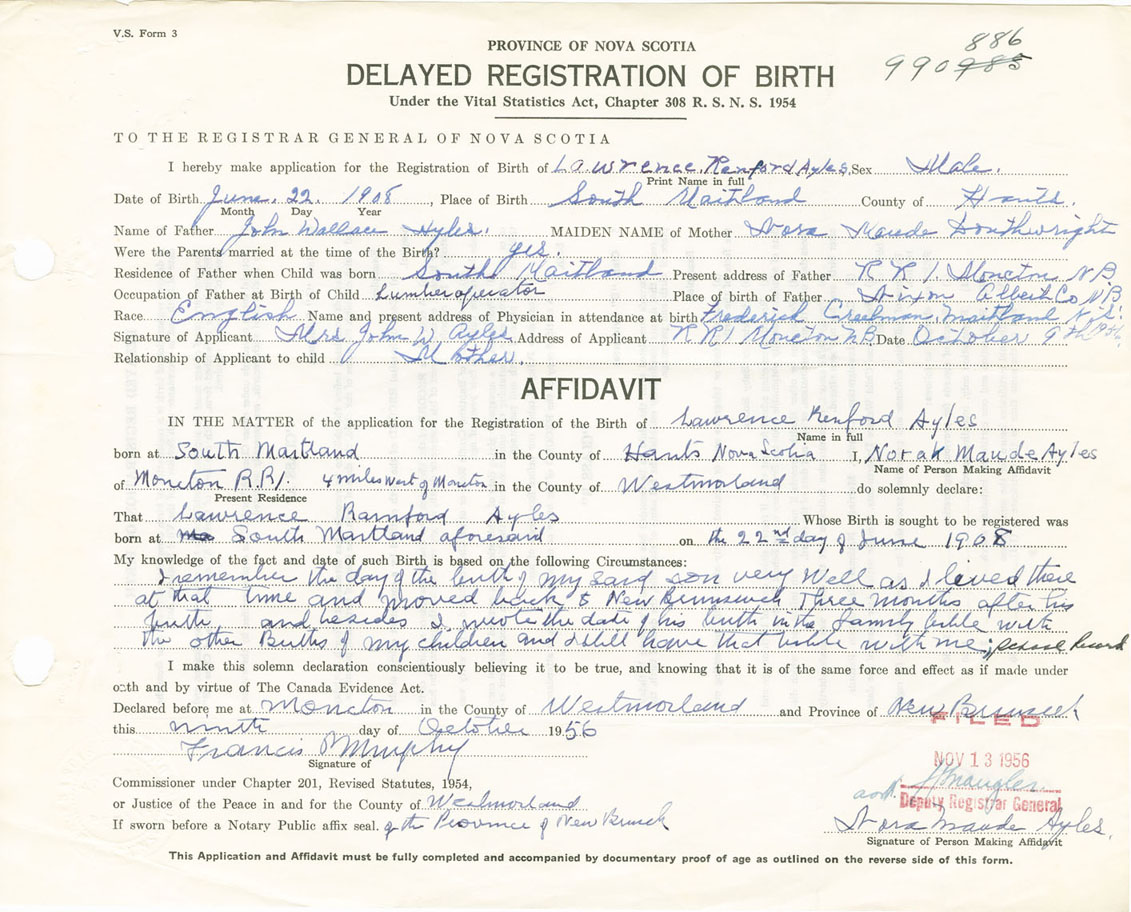 V.S. Form 3
PROVINCE OF NOVA SCOTIA
886
990 985
DELAYED REGISTRATION OF BIRTH
Under the Vital Statistics Act, Chapter 308 R. S. N. S. 1954
TO THE REGISTRAR GENERAL OF NOVA SCOTIA
I hereby make application for the Registration of Birth of Lawrence Renford Ayles Sex Male.
Print Name in full
Date of Birth June. 22. 1908, Place of Birth South Maitland County of Hants.
Month Day Year
Name of Father John Wallace Ayles. MAIDEN NAME of Mother Nora Maude Douthwright
Were the Parents married at the time of the Birth? yes.
Residence of Father when Child was born South Maitland Present address of Father R R 1. Moncton NB
Occupation of Father at Birth of Child Lumber operator Place of birth of Father Dixon Albert Co NB
Race English Name and present address of Physician in attendance at birth Frederick Creelman Maitland N.S.
Signature of Applicant Mrs John W. Ayles Address of Applicant R R 1 Moncton NB Date October 9th 1956
Relationship of Applicant to child Mother.
AFFIDAVIT
IN THE MATTER of the application for the Registration of the Birth of Lawrence Renford Ayles
Name in full
born at South Maitland in the County of Hants Nova Scotia I, Norah Maude Ayles
Name of Person Making Affidavit
of Moncton R.R.1. 4 miles west of Moncton in the County of Westmorland do solemnly declare:
Present Residence
That Lawrence Ranford Ayles Whose Birth is sought to be registered was
born at South Maitland aforesaid on the 22nd day of June 1908
My knowledge of the fact and date of such Birth is based on the following Circumstances:
I remember the day of the birth of my said son very well as I lived there
at that time and moved back to New Brunswick Three Months after his
birth and besides I wrote the date of his birth in the family bible with
the other Births of my children and I still have that bible with me, school record
I make this solemn declaration conscientiously believing it to be true, and knowing that it is of the same force and effect as if made under
oath and by virtue of The Canada Evidence Act.
Declared before me at Moncton in the County of Westmorland and Province of New Brunswick
FILED
this ninth day of October 1956
Francis P Murphy
Signature of
NOV 13 1956
Commissioner under Chapter 201, Revised Statutes, 1954,
Deputy Registrar General
or Justice of the Peace in and for the County of Westmorland
If sworn before a Notary Public affix seal. of the Province of New Brunswick
Nora Maude Ayles.
Signature of Person Making Affidavit
This Application and Affidavit must be fully completed and accompanied by documentary proof of age as outlined on the reverse side of this form.